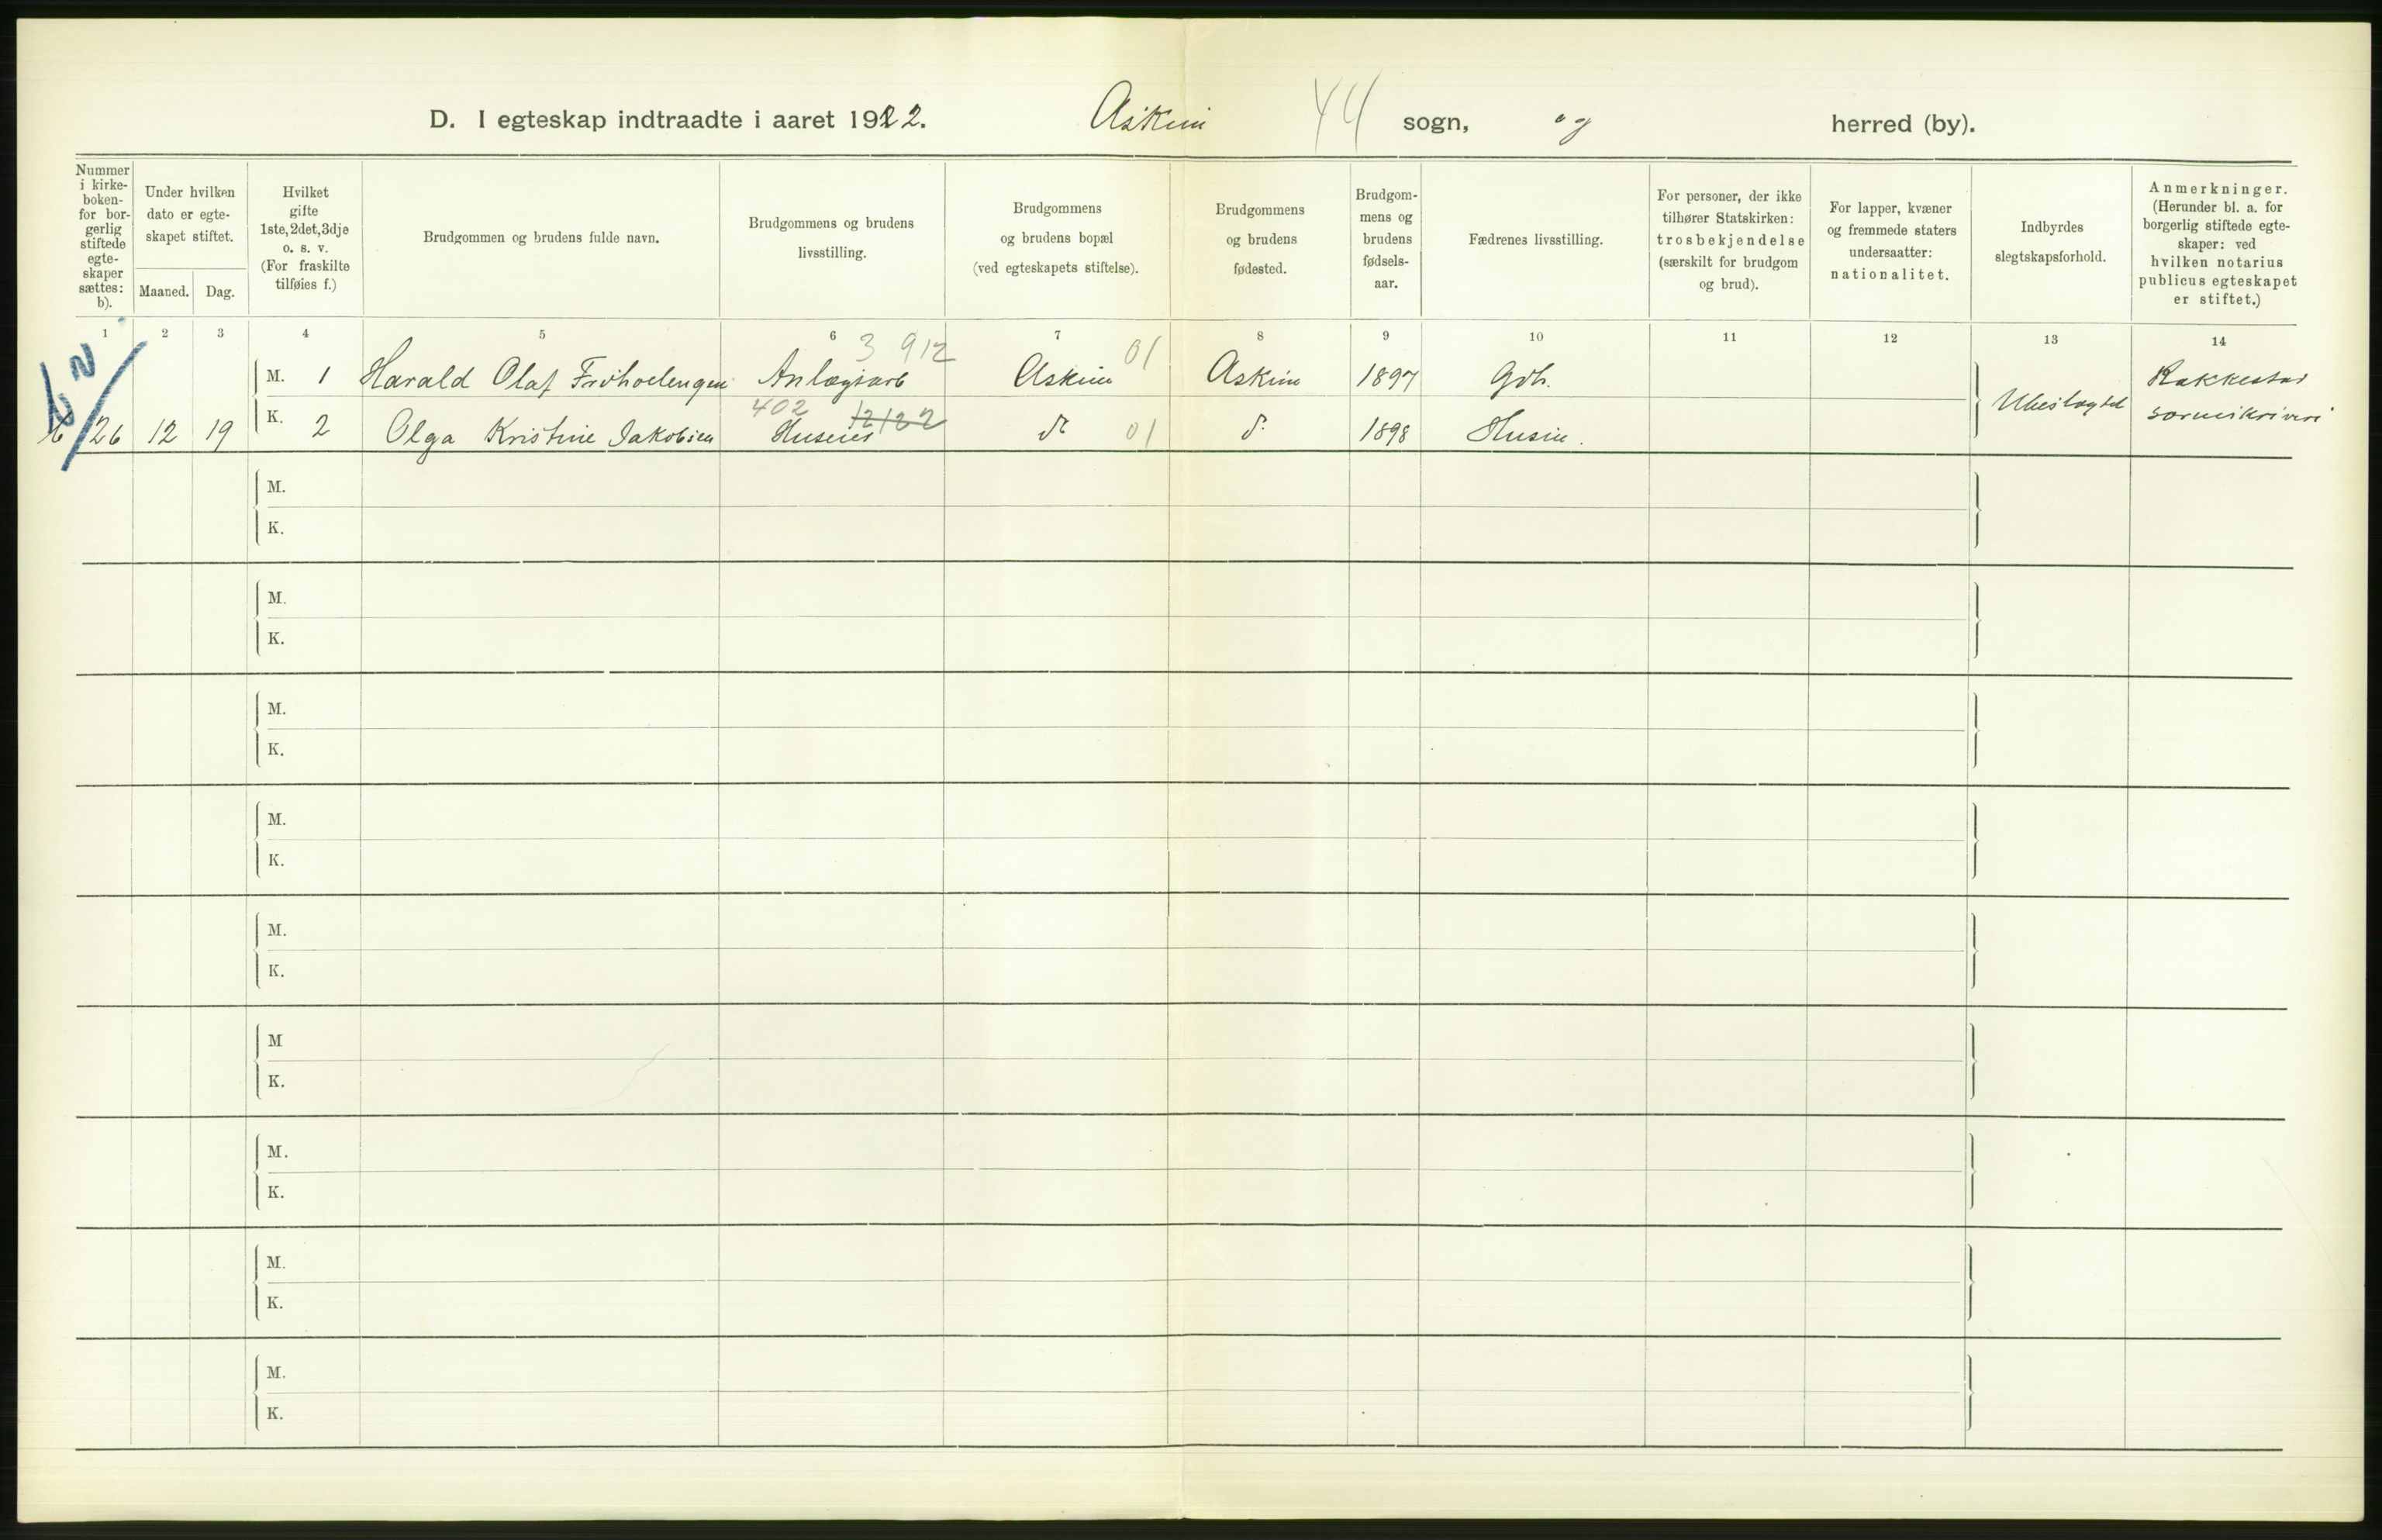 D. I egteskap indtraadte i aaret 1922. Askim 44 sogn, og herred (by).
Nummer i kirke-boken- for bor-gerlig stiftede egte-skaper sættes: b).
Under hvilken dato er egte-skapet stiftet.
Maaned. Dag.
Hvilket gifte 1ste, 2det, 3dje o. s. v. (For fraskilte tilføies f.)
Brudgommen og brudens fulde navn.
Brudgommens og brudens livsstilling.
Brudgommens og brudens bopæl (ved egteskapets stiftelse).
Brudgommens og brudens fødested.
Brudgom-mens og brudens fødsels-aar.
Fædrenes livsstilling.
For personer, der ikke tilhører Statskirken: trosbekjendelse (særskilt for brudgom og brud).
For lapper, kvæner og fremmede staters undersaatter: nationalitet.
Indbyrdes slegtskapsforhold.
Anmerkninger. (Herunder bl. a. for borgerlig stiftede egte-skaper: ved hvilken notarius publicus egteskapet er stiftet.)
1 2 3 4 5 6 7 8 9 10 11 12 13 14
3 912 01
M. 1 Harald Olaf Anlægsarb Askim Askim 1897 Gdb. Rakkestad
402 12122
b 26 12 19 K. 2 Olga Kristine Jakobsen d 01 d. 1898 Ubeslægtet sorenskriveri
M.
K.
M.
K.
M.
K.
M.
K.
M.
K.
M
K.
M.
K.
M.
K.
M.
K.